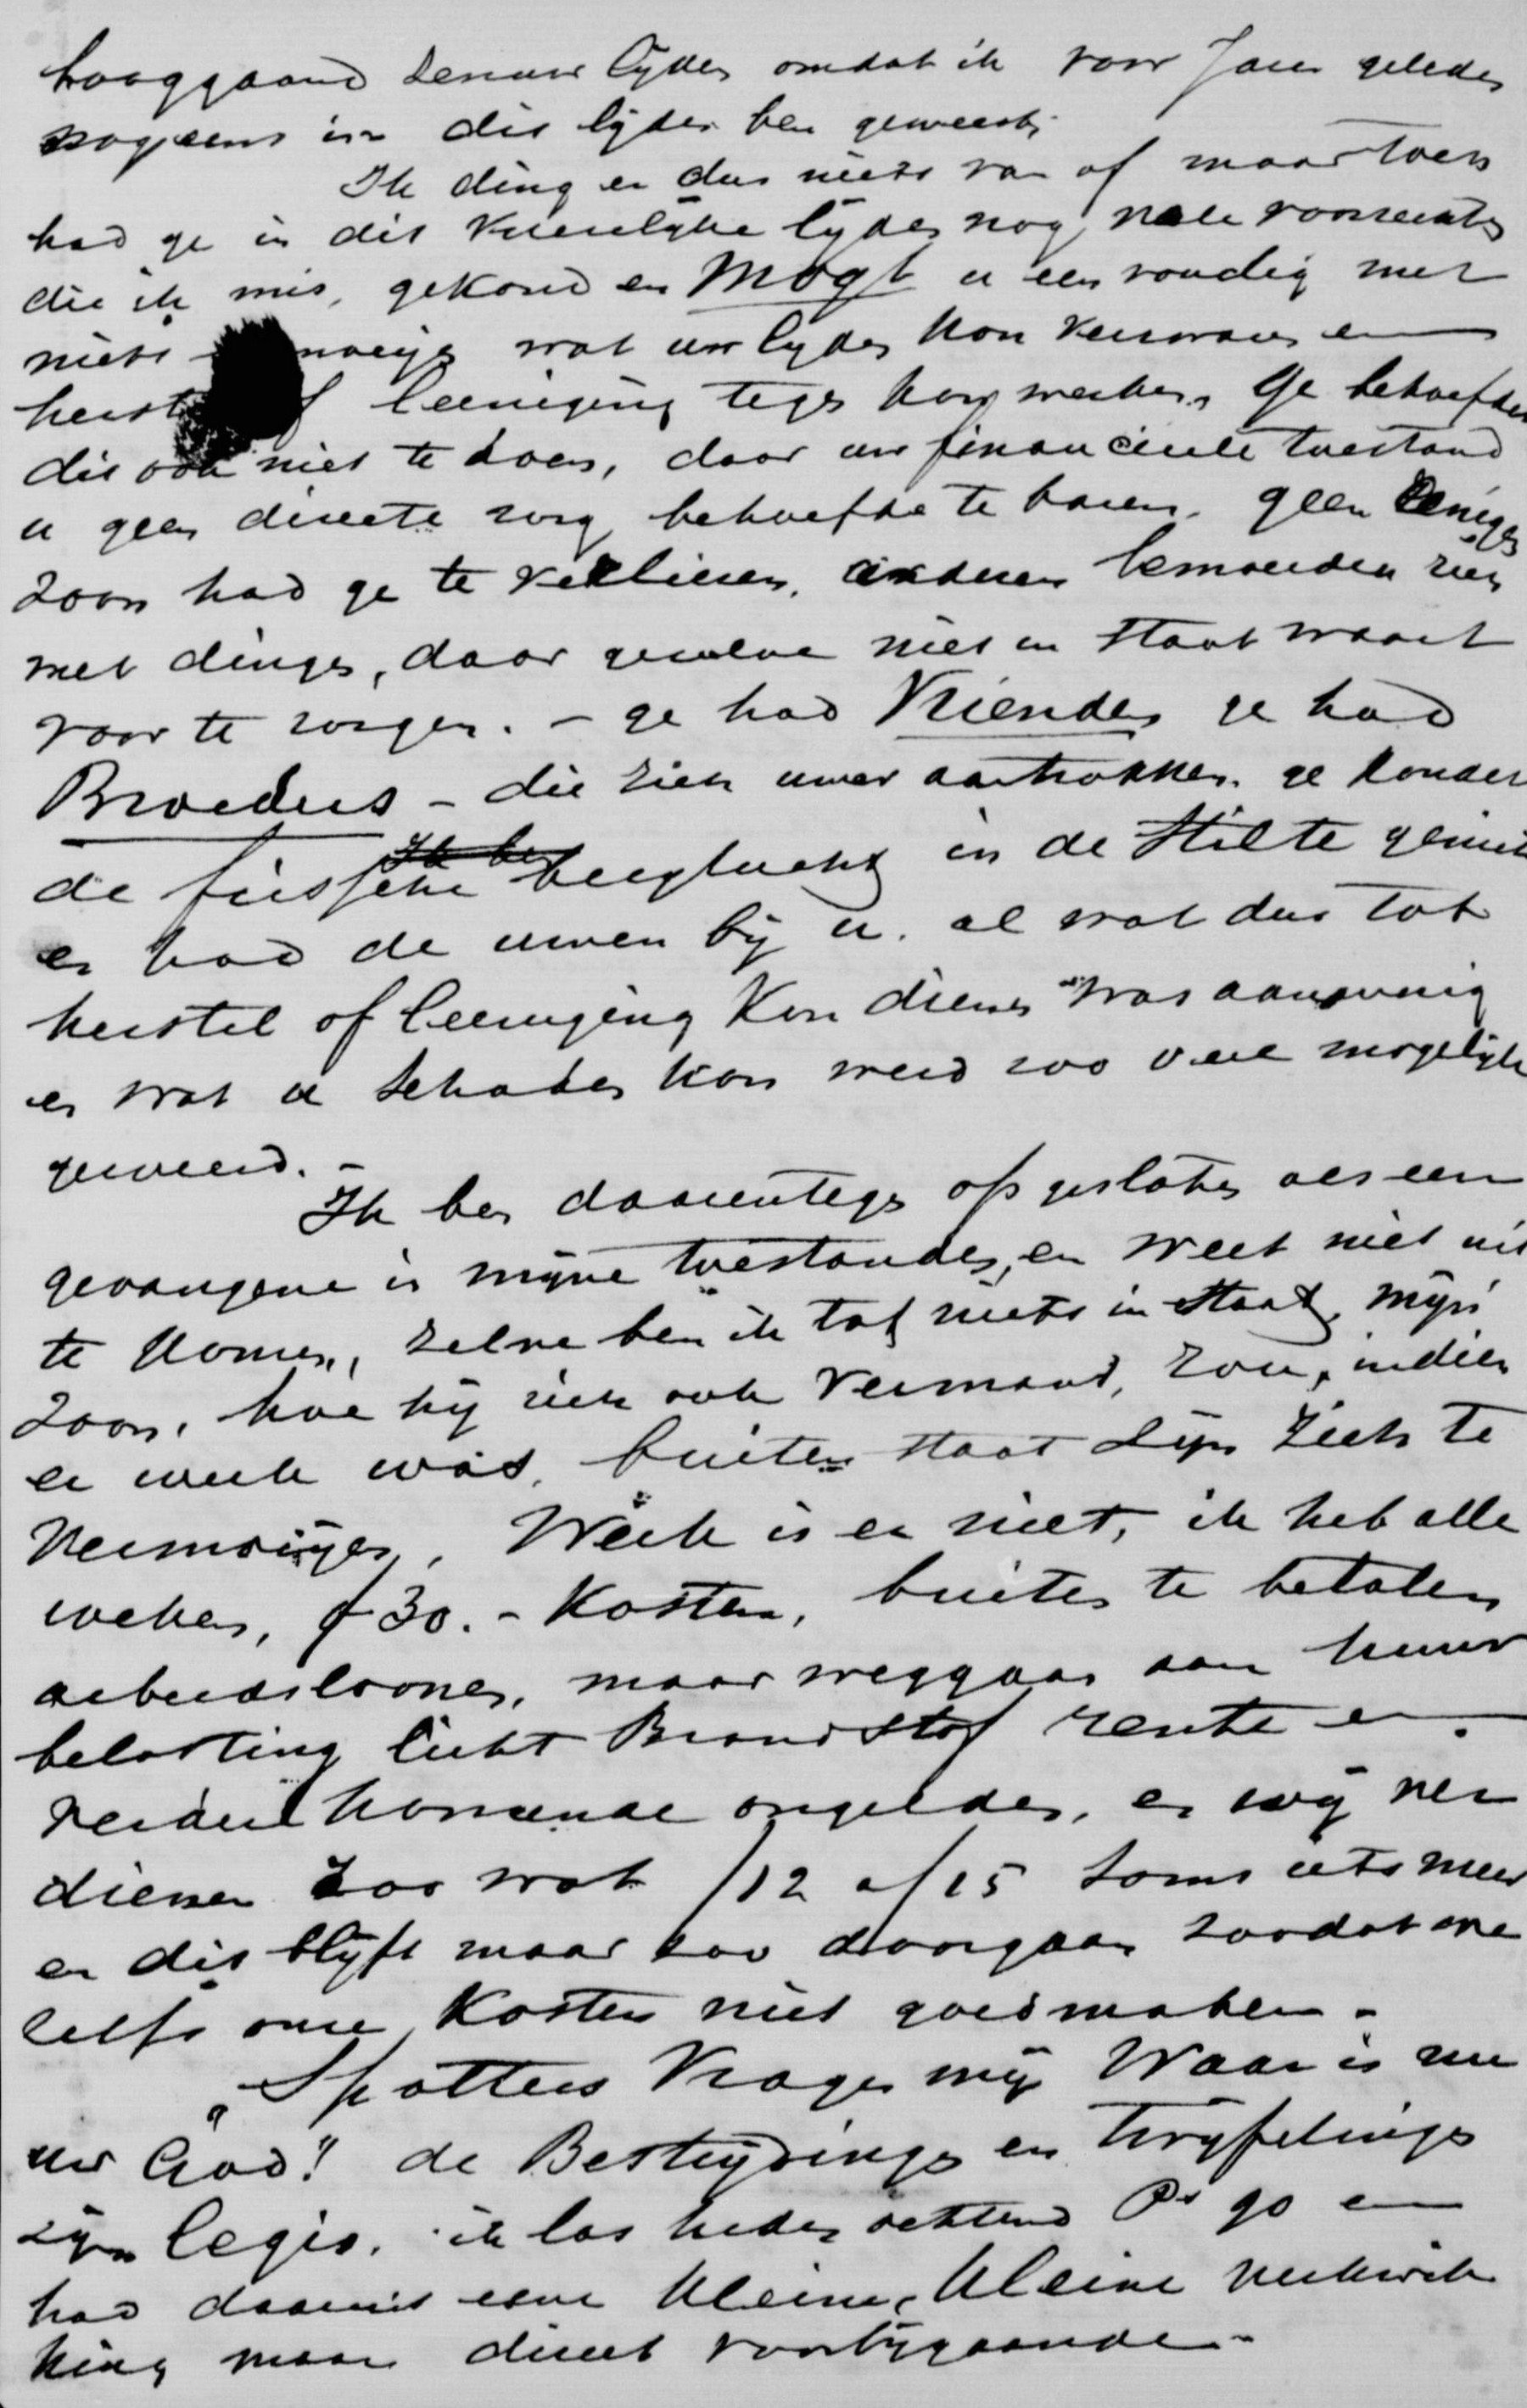 hooggaand zenuw lijden omdat ik voor Jaren geleden
nogeens in dit lijden ben geweest,
Ik ding er dus niets van af maar toen
had ge in dit vreeselijke lijden nog vele voorrechten
die ik mis, gekond en mogt u eenvoudig met
niets wat uw lijden kon verzwaren en
herstel of leeniging tegen kon werken, Ge behoefden
dit ook niet te doen, daar uw financieele toestand
u geen directe zorg behoefde te baren, geen eenigen
zoon had ge te verliezen, anderen bemoeiden zich
met dingen, daar gezelve niet in staat waart
voor te zorgen. - ge had Vrienden ge had
Broeders - die zich uwer aantrokken. ge konden
de frissche berglucht in de Stilte genieten
en had de uwen bij u. al wat dus tot
herstel of leeniging kon dienen was aanwezig
en wat u schaden kon werd zoo veel mogelijk
geweerd. -
Ik ben daarentegen opgesloten als een
gevangene in mijne toestanden, en weet niet uit
te komen, zelve ben ik tot niets in staat, mijn
zoon, hoe hij zich ook vermand, zou, indien
er werk was, buiten staat zijn zich te
. Werk is er niet, ik heb alle
weken, f 30.- Kosten, buiten te betalen
arbeidsloonen, maar weggaan aan huur
belasting licht Brandstof rente en
verder komende ongelden, en wij ver
dienen zoo wat f12 af15 soms iets meer
en dit blijft maar zoo doorgaan zoodat we
zelfs onze Kosten niet goedmaken -
„Spotters vragen mij Waar is nu
uw God!" de Bestrijdingen en twijfelingen
zijn legio. ik las heden ochtend Ps 90 en
had daaruit eene kleine, kleine verkwik
king maar direct voorbijgaande -